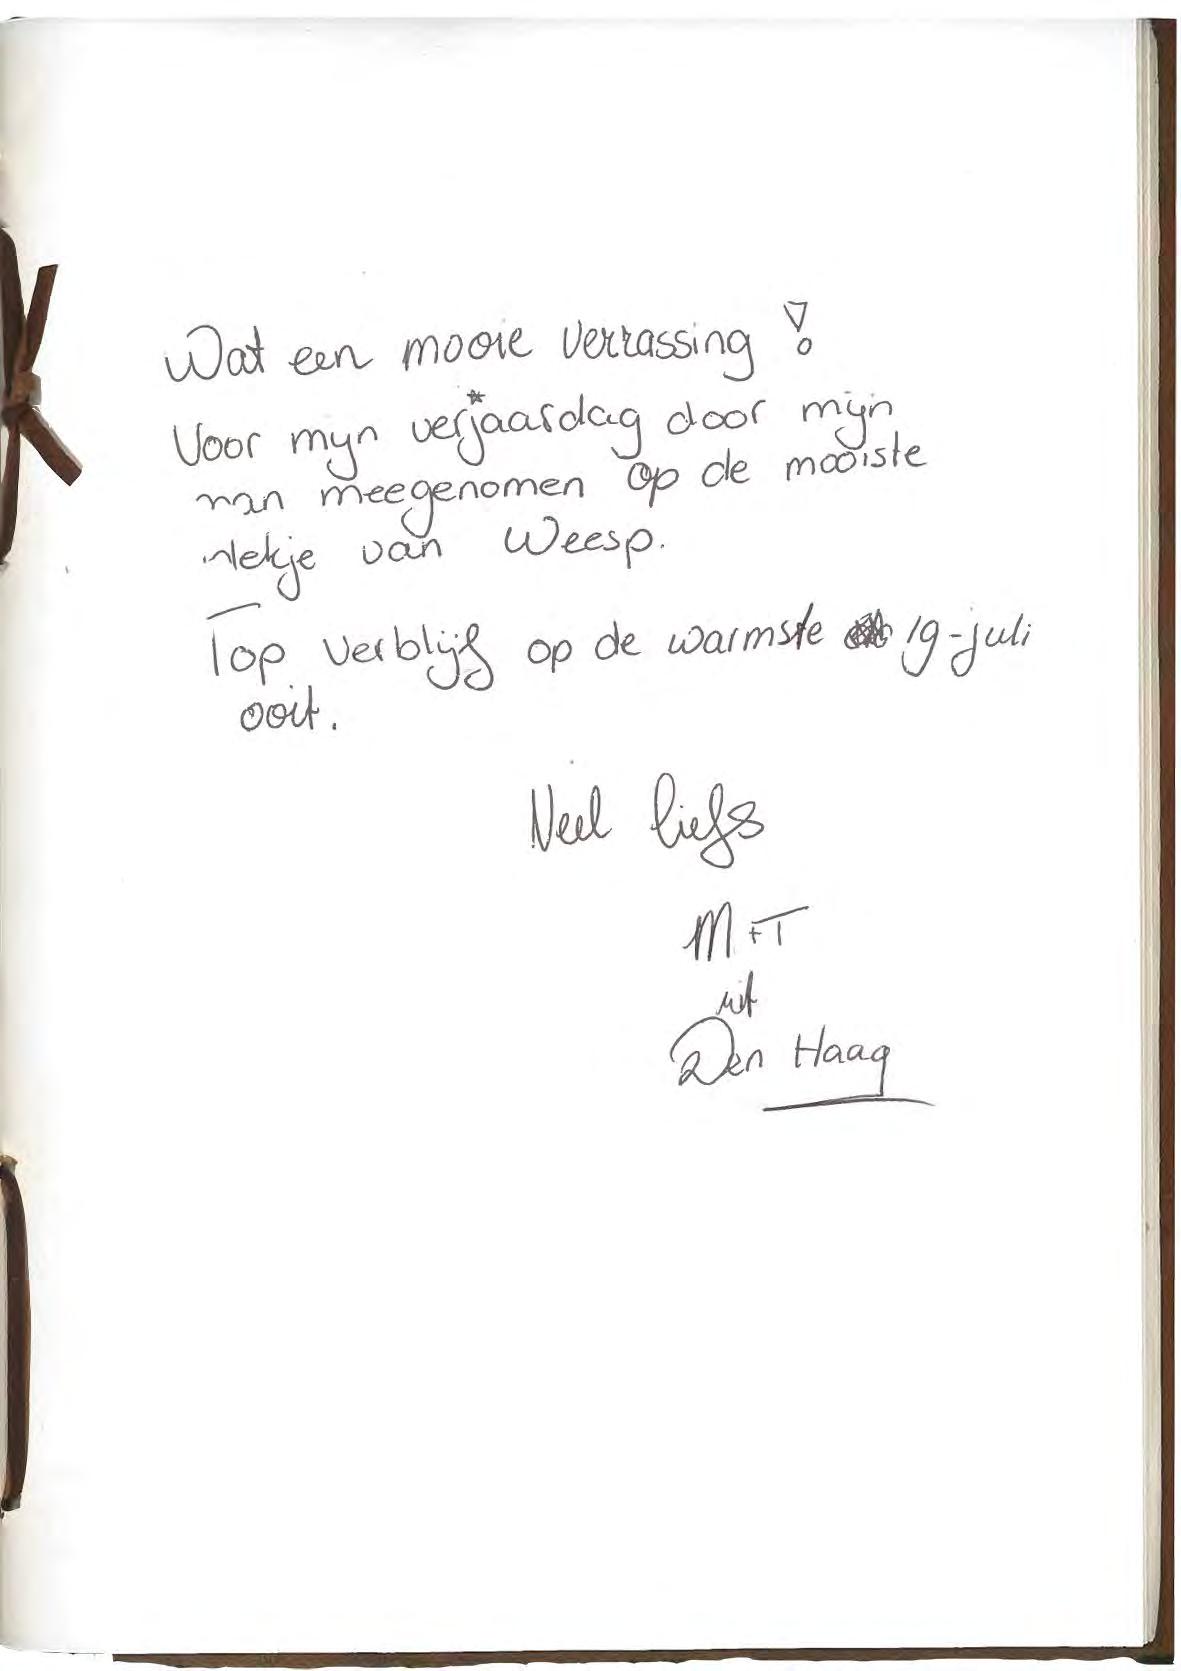 Wat een mooie verrassing!
Voor mijn verjaardag door mijn
man meegenomen op de mooiste
plekje van Weesp.
Top verblijf op de warmste 19-juli
ooit.
Veel liefs
M+T
uit
Den Haag